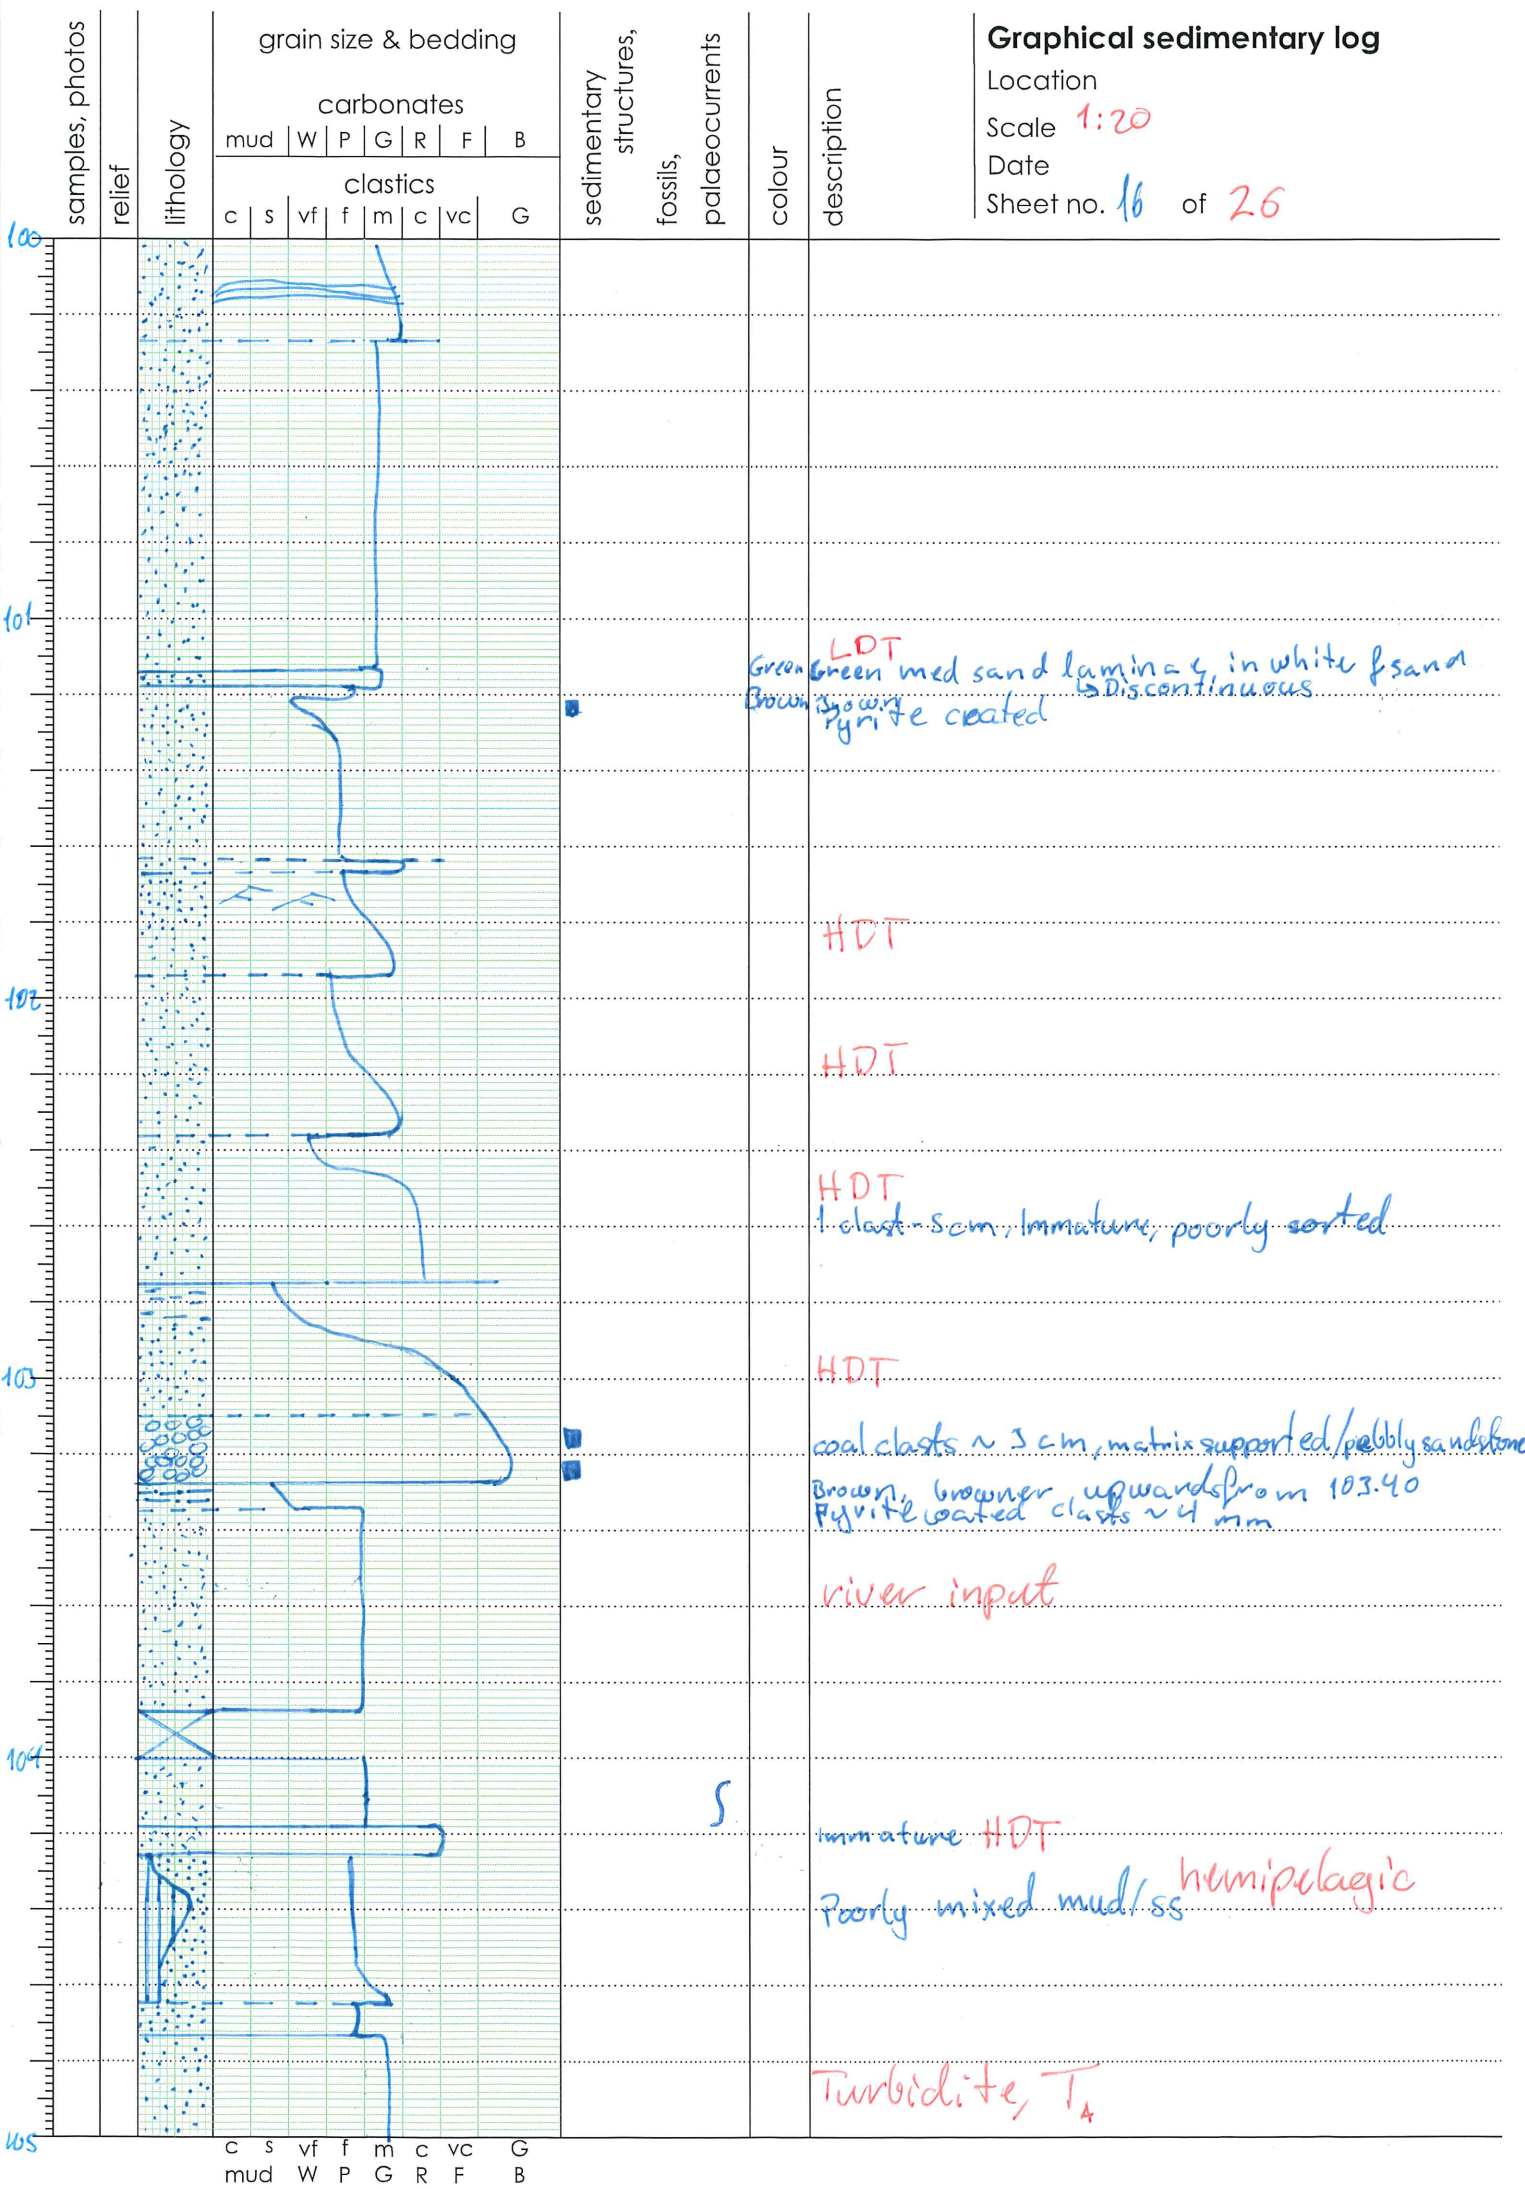 samples, photos
relief
lithology
grain size & bedding
carbonates
mud W P G R F B
clastics
c s vf f m c vc G
sedimentary
structures,
fossils,
palaeocurrents
colour
description
Graphical sedimentary log
Location
Scale 1:20
Date
Sheet no. 16 of 26
100
101
LDT
Green Green med sand laminae, in white f sand
↳ Discontinuous
Brown Brown
Pyrite coated
HDT
102
HDT
HDT
1 clast - 5cm, Immature, poorly sorted
103
HDT
coal clasts ~ 3 cm, matrix supported/pebbly sandstone
Brown, browner upwards from 103.40
Pyrite coated clasts ~ 4 mm
river input
104
Immature HDT
hemipelagic
Poorly mixed mud/ss
Turbidite, TA
105
c s vf f m c vc G
mud W P G R F B